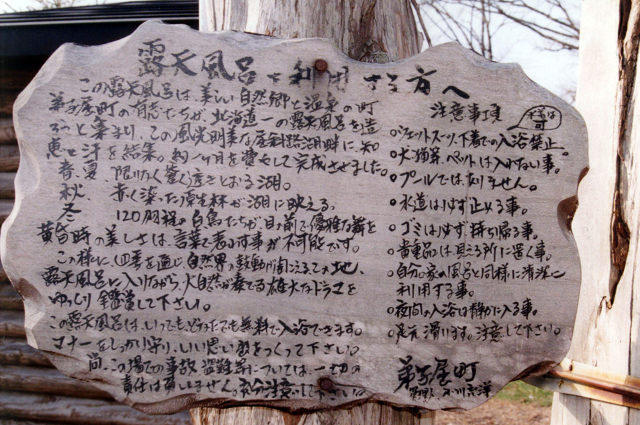 露天風呂を利用する方へ
この露天風呂は、美しい自然郷と温泉の町
弟子屈町の有志たちが、北海道一の露天風呂を造
ろうと集まり、この風光明美な屈斜路湖畔に、知
恵と汗を結集。約ヶ月を費して完成させました。
春、夏 限りなく青く透きとおる湖。
秋、 赤く染った原生林が湖に映える。
冬 120羽程の白鳥たちが、目の前で優雅な舞を
黄昏時の美しさは、言葉で表わす事が不可能です。
この様に、四季を通じ自然界の鼓動が聞こえるこの地、
露天風呂に入りながら、大自然が奏でる雄大なドラマを
ゆっくり鑑賞して下さい。
この露天風呂は、いつでもどなたでも無料で入浴できます。
マナーをしっかり守り、いい思い出をつくって下さい。
尚、この場での事故、盗難等については、一切の
責任は負いません。充分注意して下さい。
注意事項
水着は可
ウェットスーツ、下着での入浴禁止。
犬、猫等、ペットは入れない事。
プールではありません。
水道は必ず止める事。
ゴミは必ず持ち帰る事。
貴重品は見える所に置く事。
自分の家の風呂と同様に清潔に
利用する事。
夜間の入浴は静かに入る事。
足元滑ります。注意して下さい。
弟子屈町